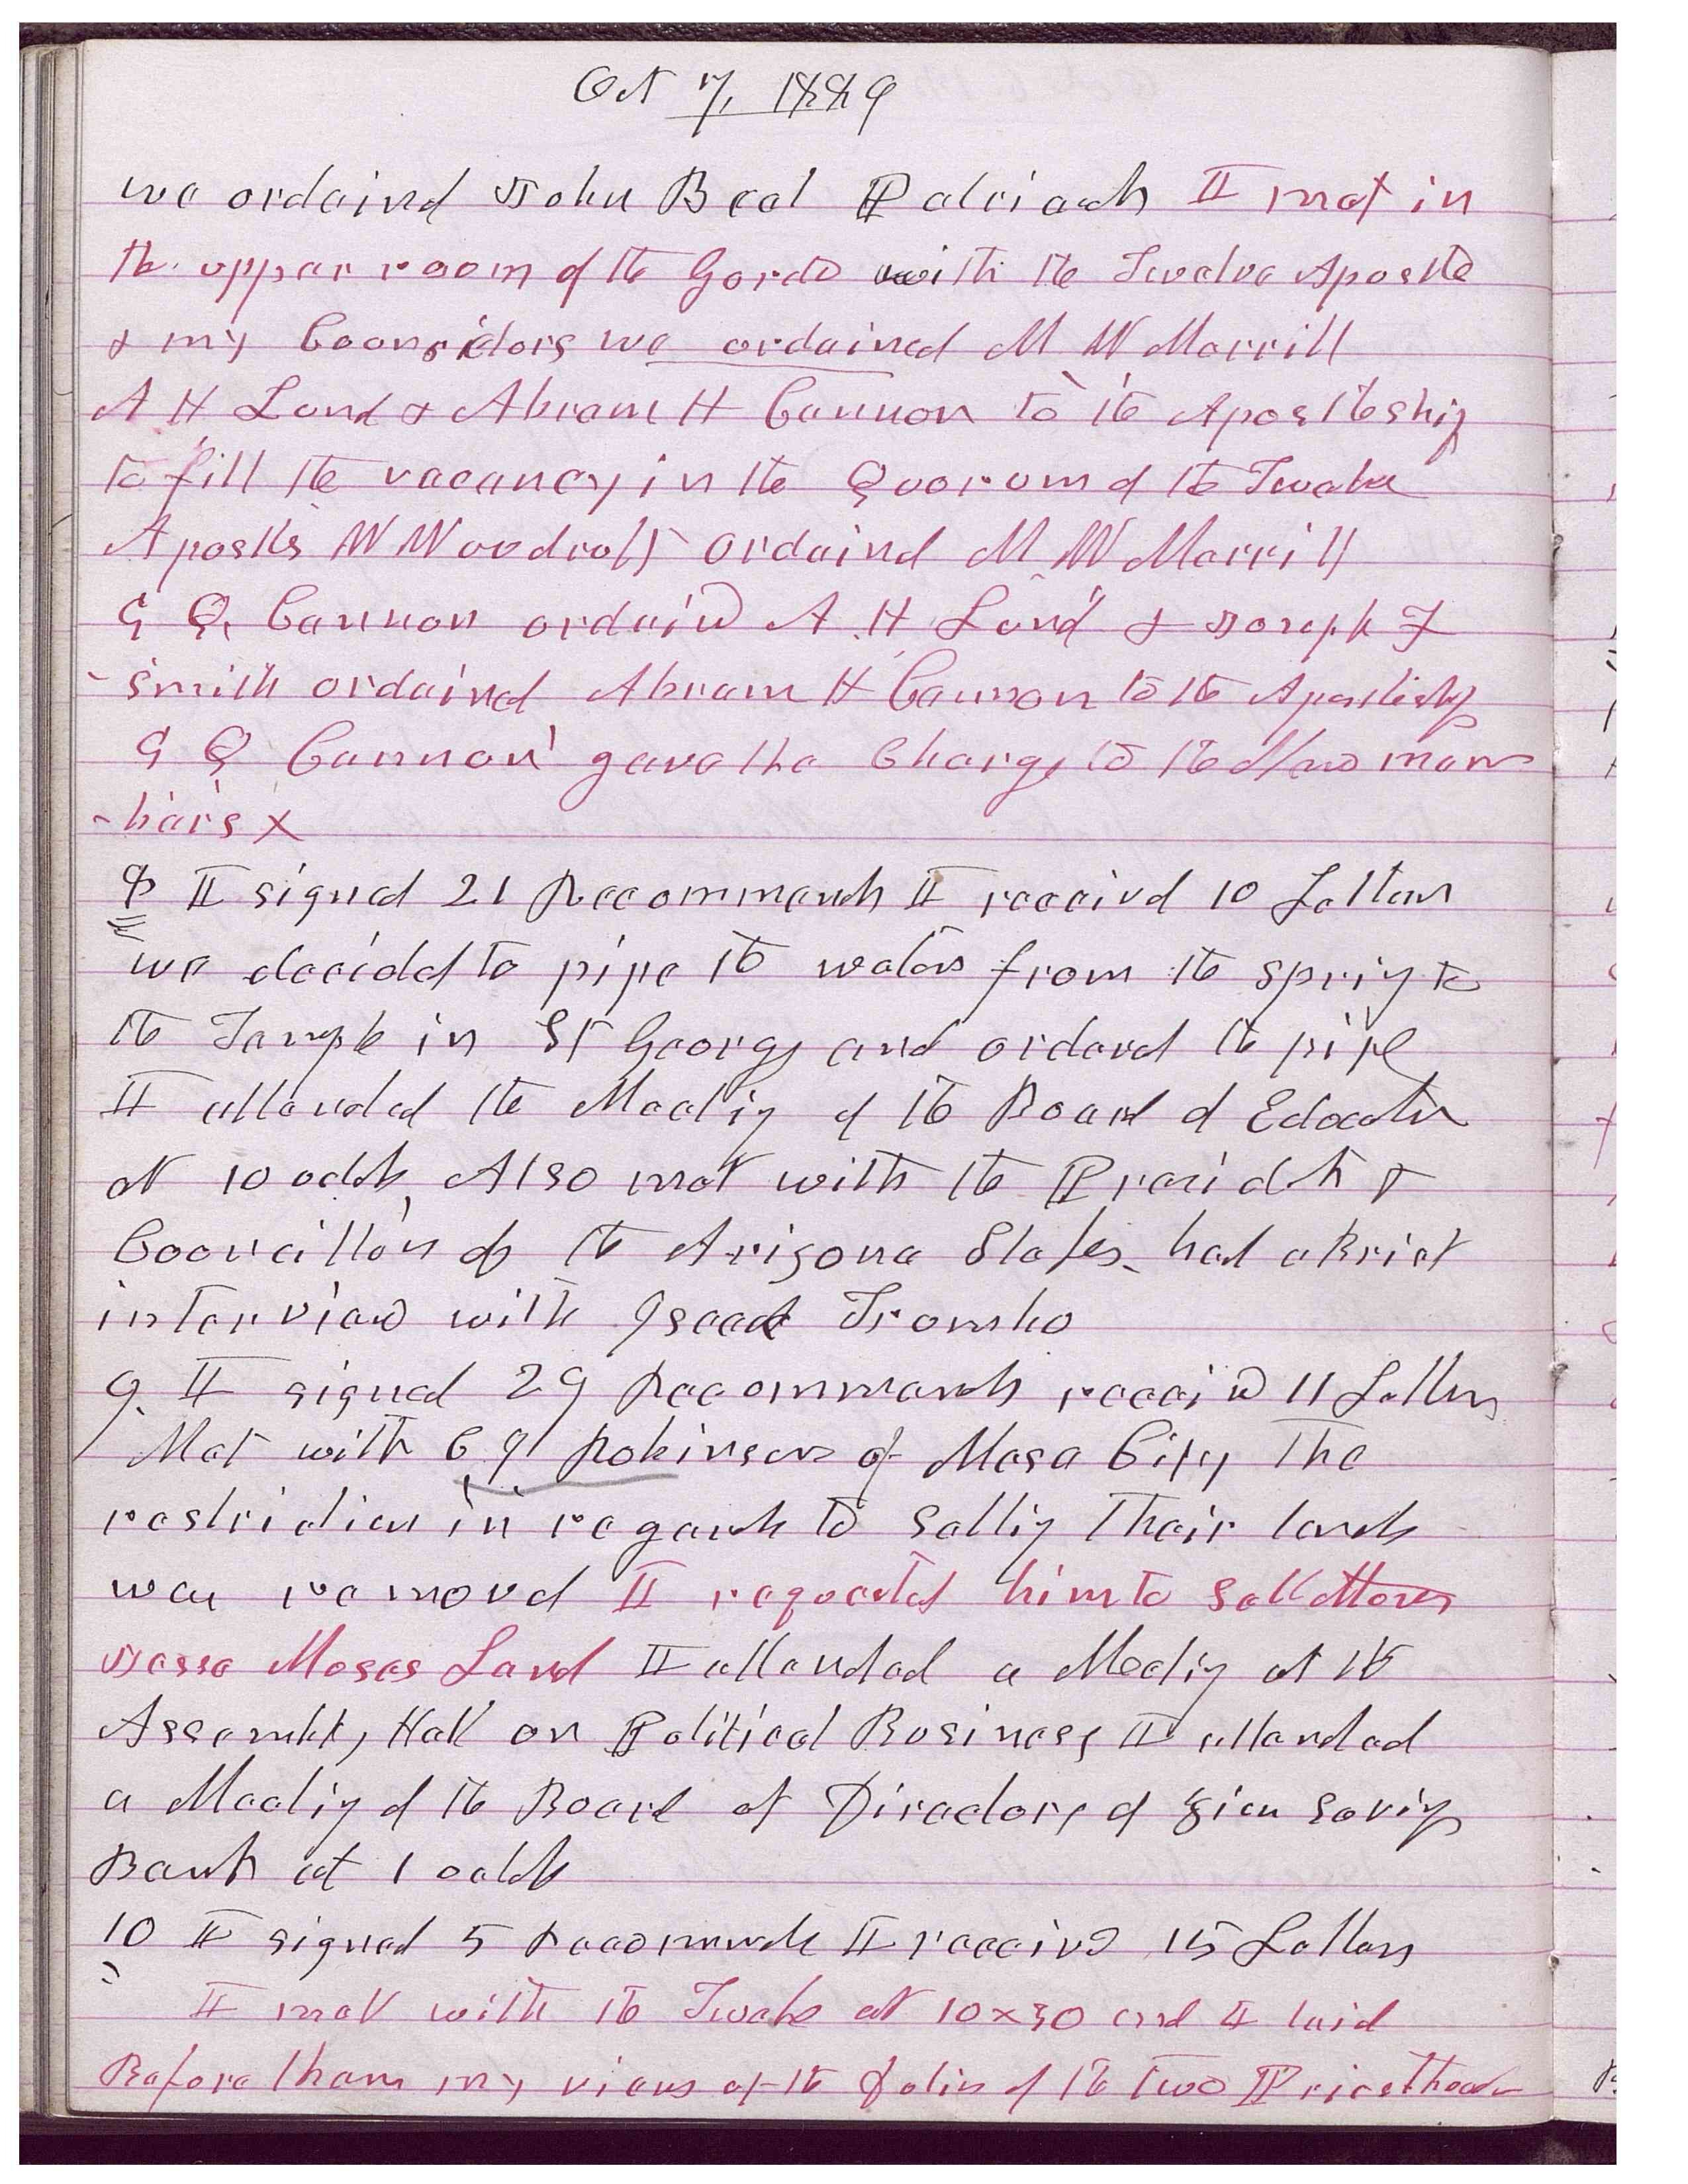 Oct 7, 1889
we ordaind John Beal Patriach I met in
the upper room of the Gardo with the Twelve Apostle
& my Councidors we ordained M W Merrill
A H Lund & Abram H Cannon to the Apostleship
to fill the vacancy in the Quorum of the Twelve
Apostls W Woodruff ordaind M W Merrill
G Q Cannon ordaind A H Lund & Joseph F
-Smith ordaind Abram H Cannon to the Apostleship
G Q Cannon gave the Charge to the New mem
-bers X
8 I signed 21 Recommends I receivd 10 Letters
we decided to pipe the waters from the spring to
the Temple in St George and orderd the pipe
I attended the Meeting of the Board of Education
at 10 oclok, Also met with the Presidets &
Councillors of the Arizona Stakes. had a Brief
interview with Isaac Trumbo
9. I signed 29 Recommends receivd 11 Letters
Met with C I Robinson of Mesa City The
restriction in regards to selling Their lands
was removed I requested him to sell
Jesse Moses Land I attended a Meeting at the
Assembly Hall on Political Business I attended
a Meeting of the Board of Directors of Zion Savings
Bank at 1 oclok
10 I signed 5 Recommends I receivd 15 Letters
I met with the Twelve at 10x30 and I laid
Before them my views of the of the two Priesthoods